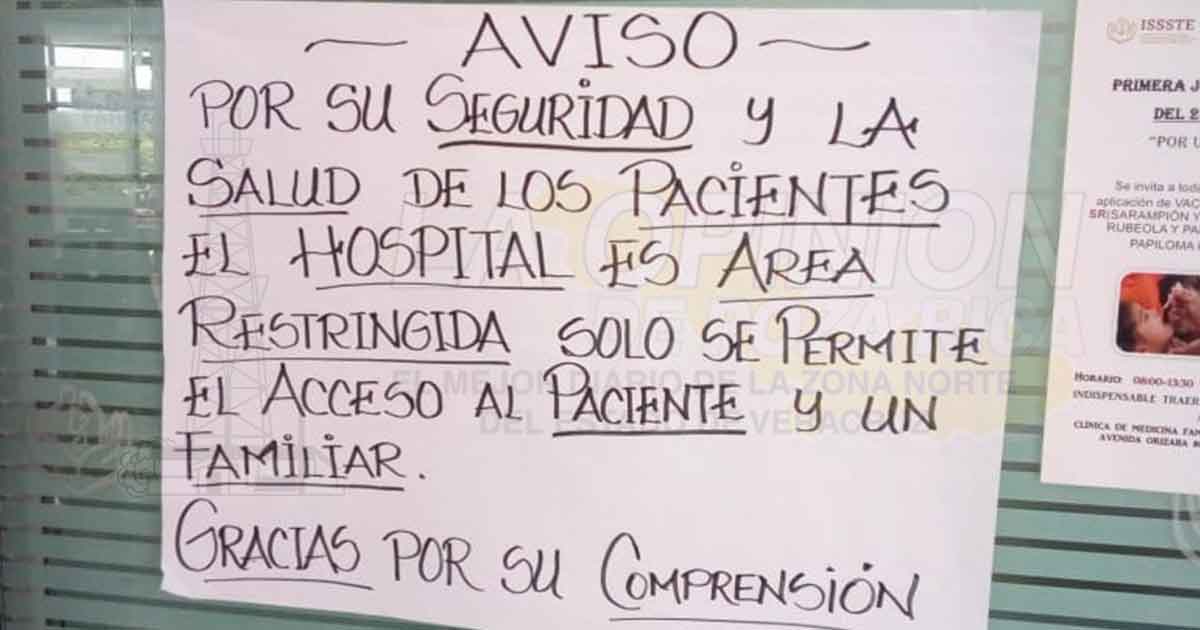 AVISO
POR SU SEGURIDAD Y LA
SALUD DE LOS PACIENTES
EL HOSPITAL ES AREA
RESTRINGIDA SOLO SE PERMITE
EL ACCESO AL PACIENTE Y UN
FAMILIAR.
GRACIAS POR SU COMPRENSIÓN
LA OPINIÓN
DE POZA RICA
EL MEJOR DIARIO DE LA ZONA NORTE
DEL ESTADO DE VERACRUZ
ISSSTE
PRIMERA J
DEL 2
"POR U
Se invita a tod
aplicación de VAC
SR(SARAMPIÓN Y
RUBEOLA Y PA
PAPILOMA
HORARIO: 08:00-13:30
INDISPENSABLE TRAER
CLÍNICA DE MEDICINA FAM
AVENIDA ORIZABA